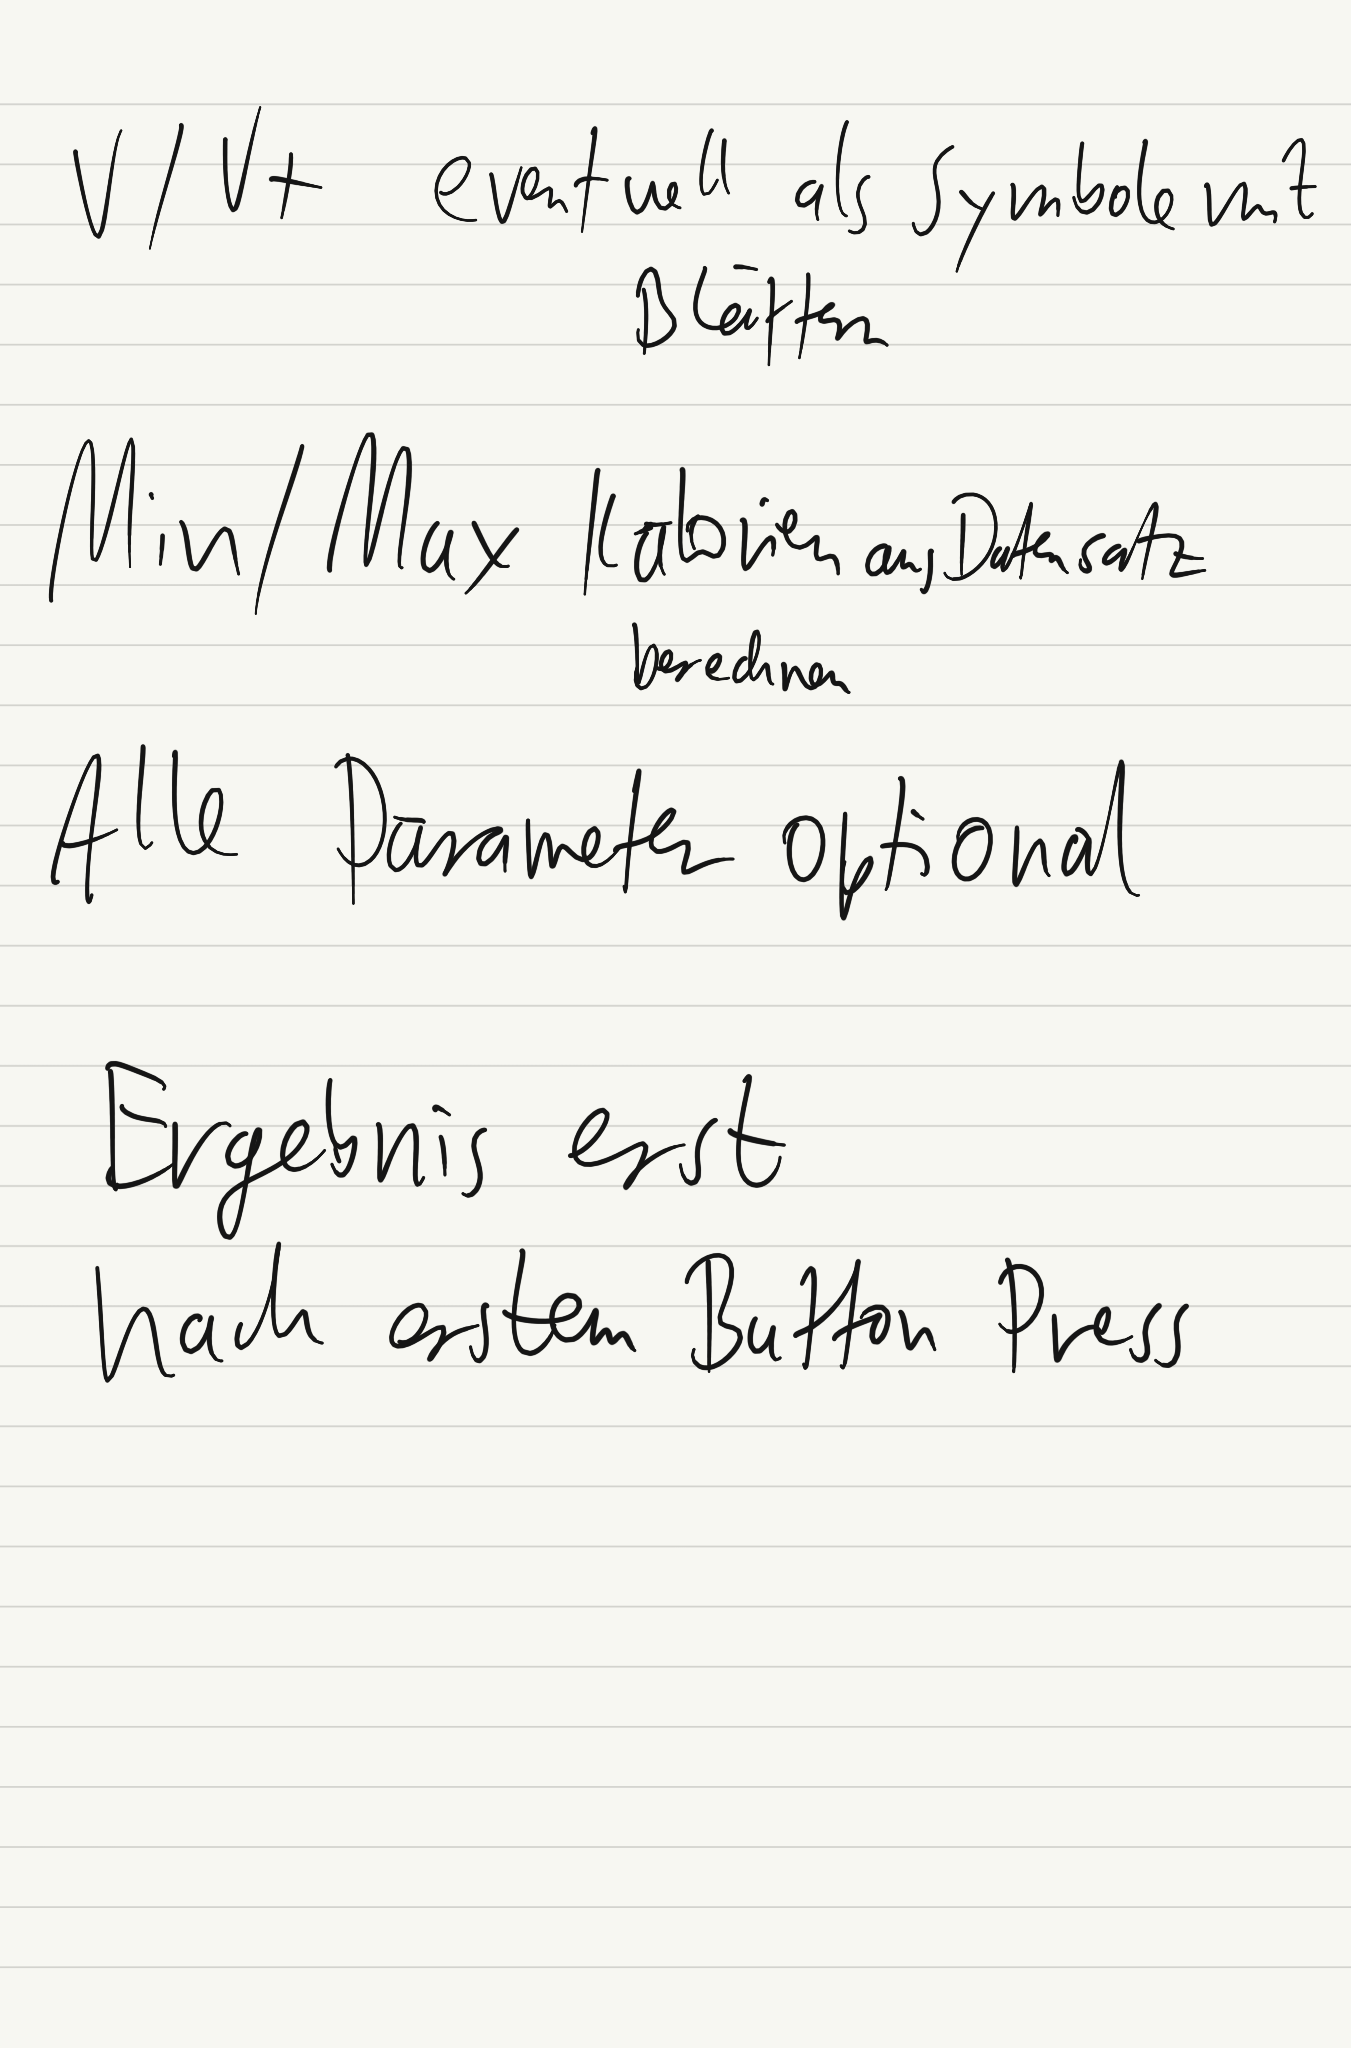 V/V+ eventuell als Symbole mit
Blättern
Min/Max Kalorien aus Datensatz
berechnen
Alle Parameter optional
Ergebnis erst
nach erstem Button Press